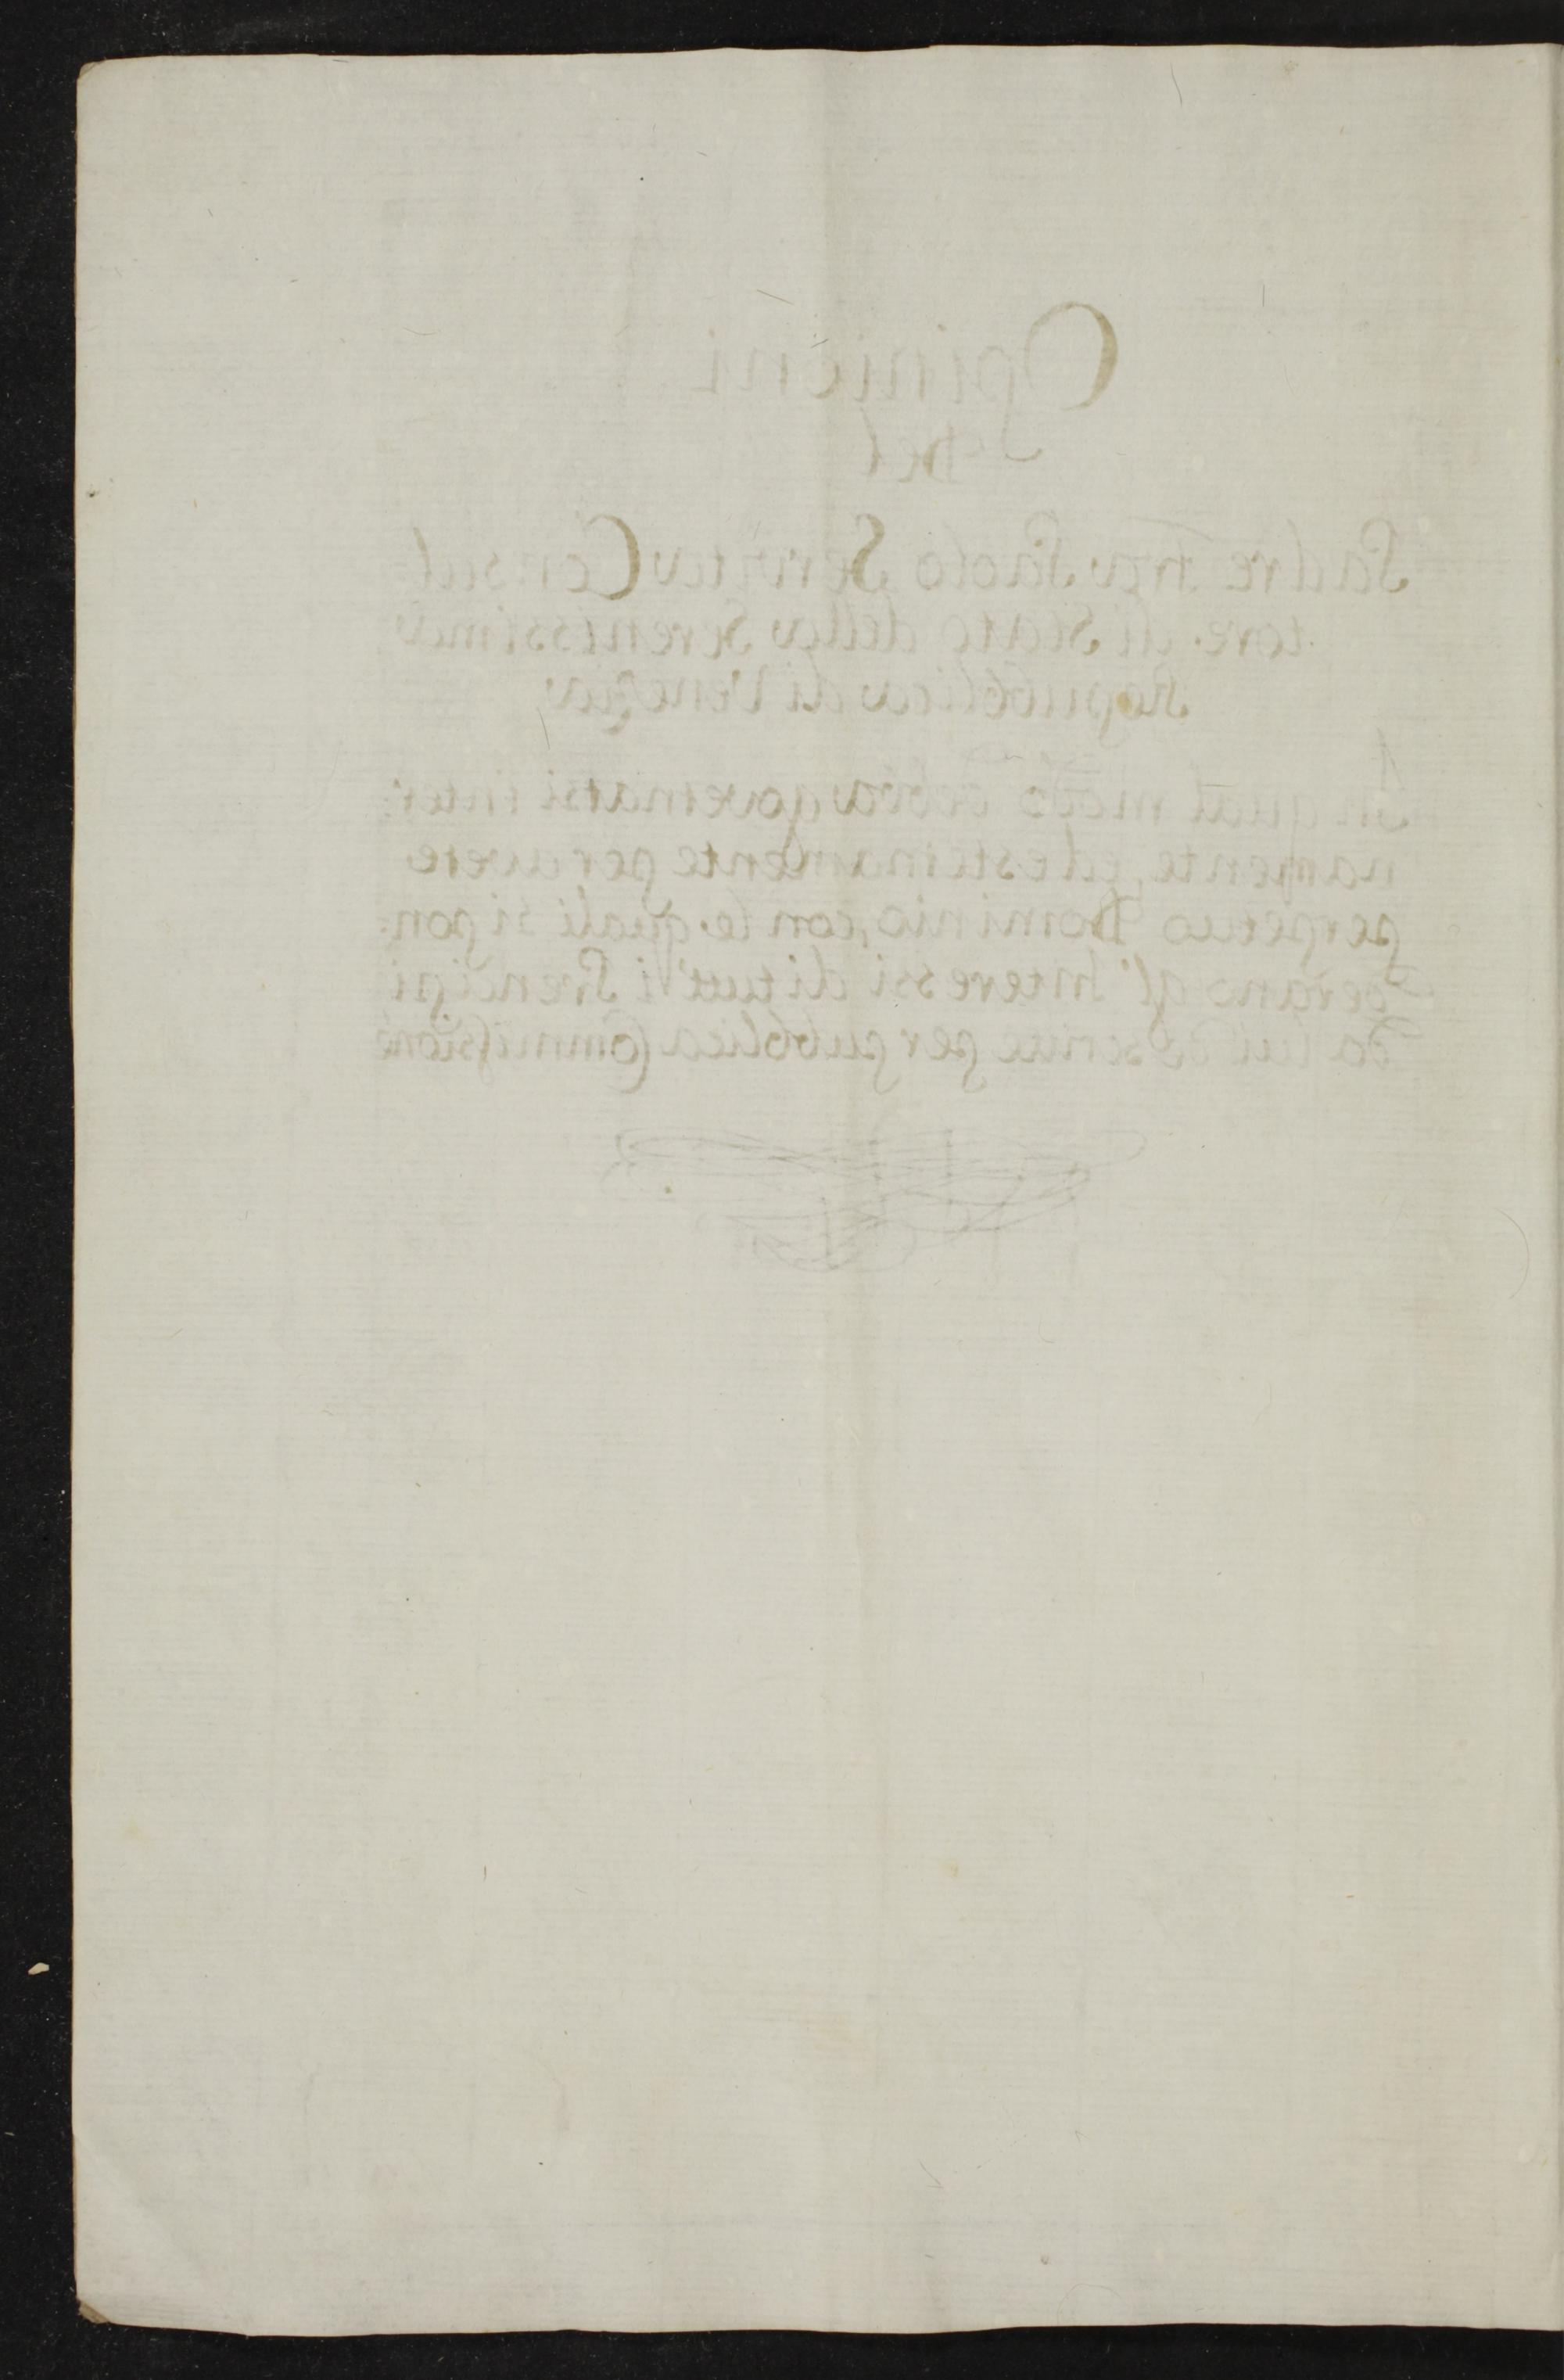 Opinioni
Del
Padre Fra Paolo Servita Consul
tore di Stato della Serenissima
Repubblica di Venezia
In qual modo debba governarsi inter
namente, ed esternamente per avere
perpetuo Dominio, con le quali si pon
derano gl' Interessi di tutt' i Prencipi
da lui descritte per pubblica Commissione